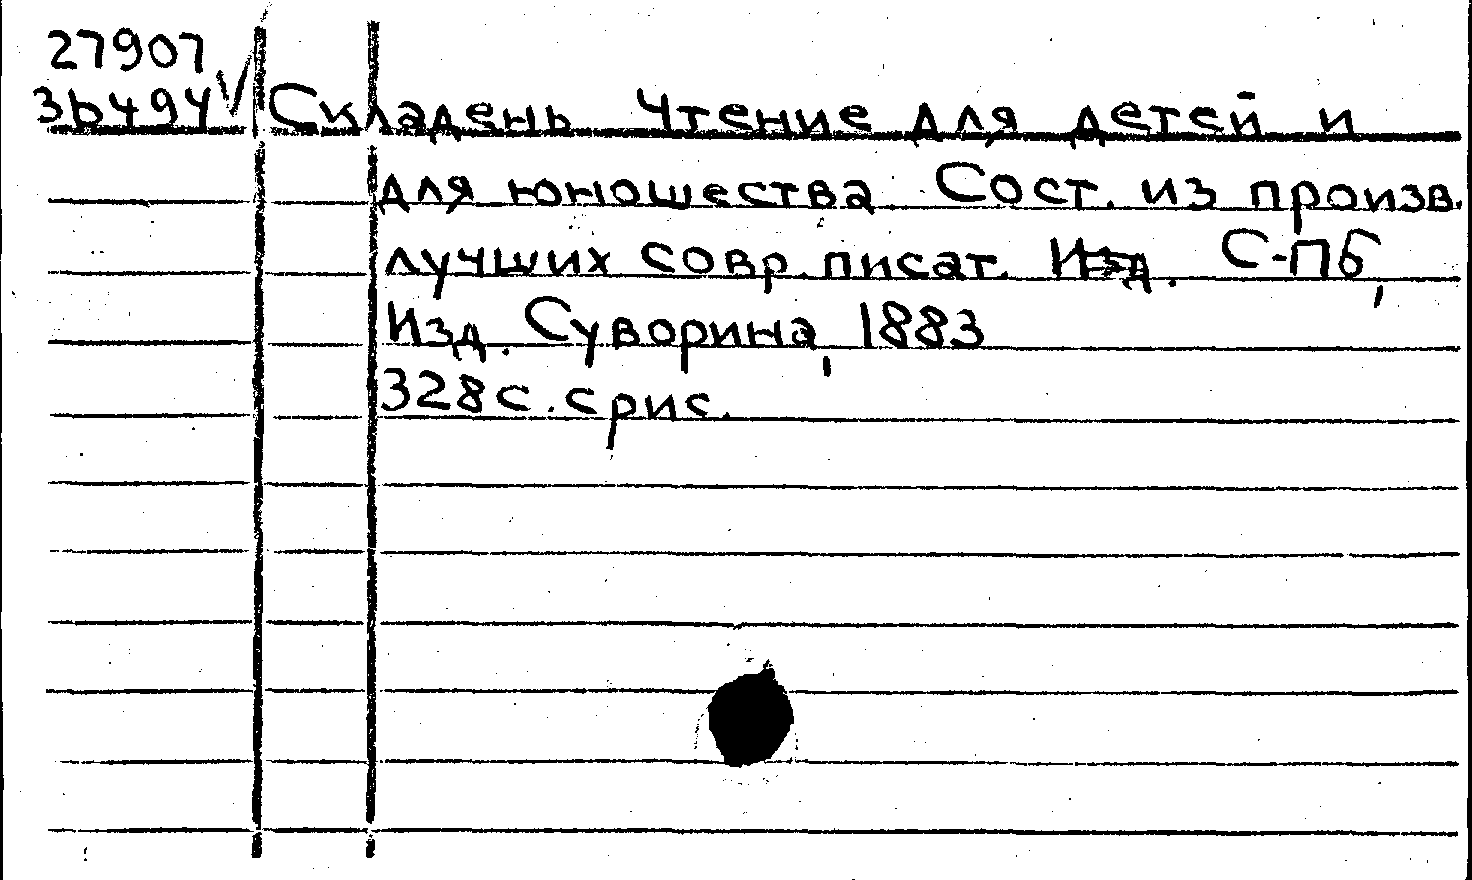 27907
3b494 Складень Чтение для детей и
для юношества. Сост. из произв.
лучших совр. писат. Изд. С-Пб,
Изд. Суворина, 1883
328с. с рис.